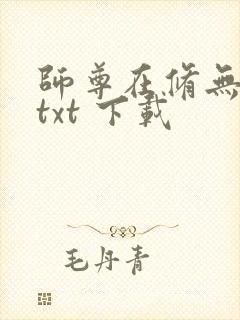 師尊在脩無
txt 下載
毛丹青